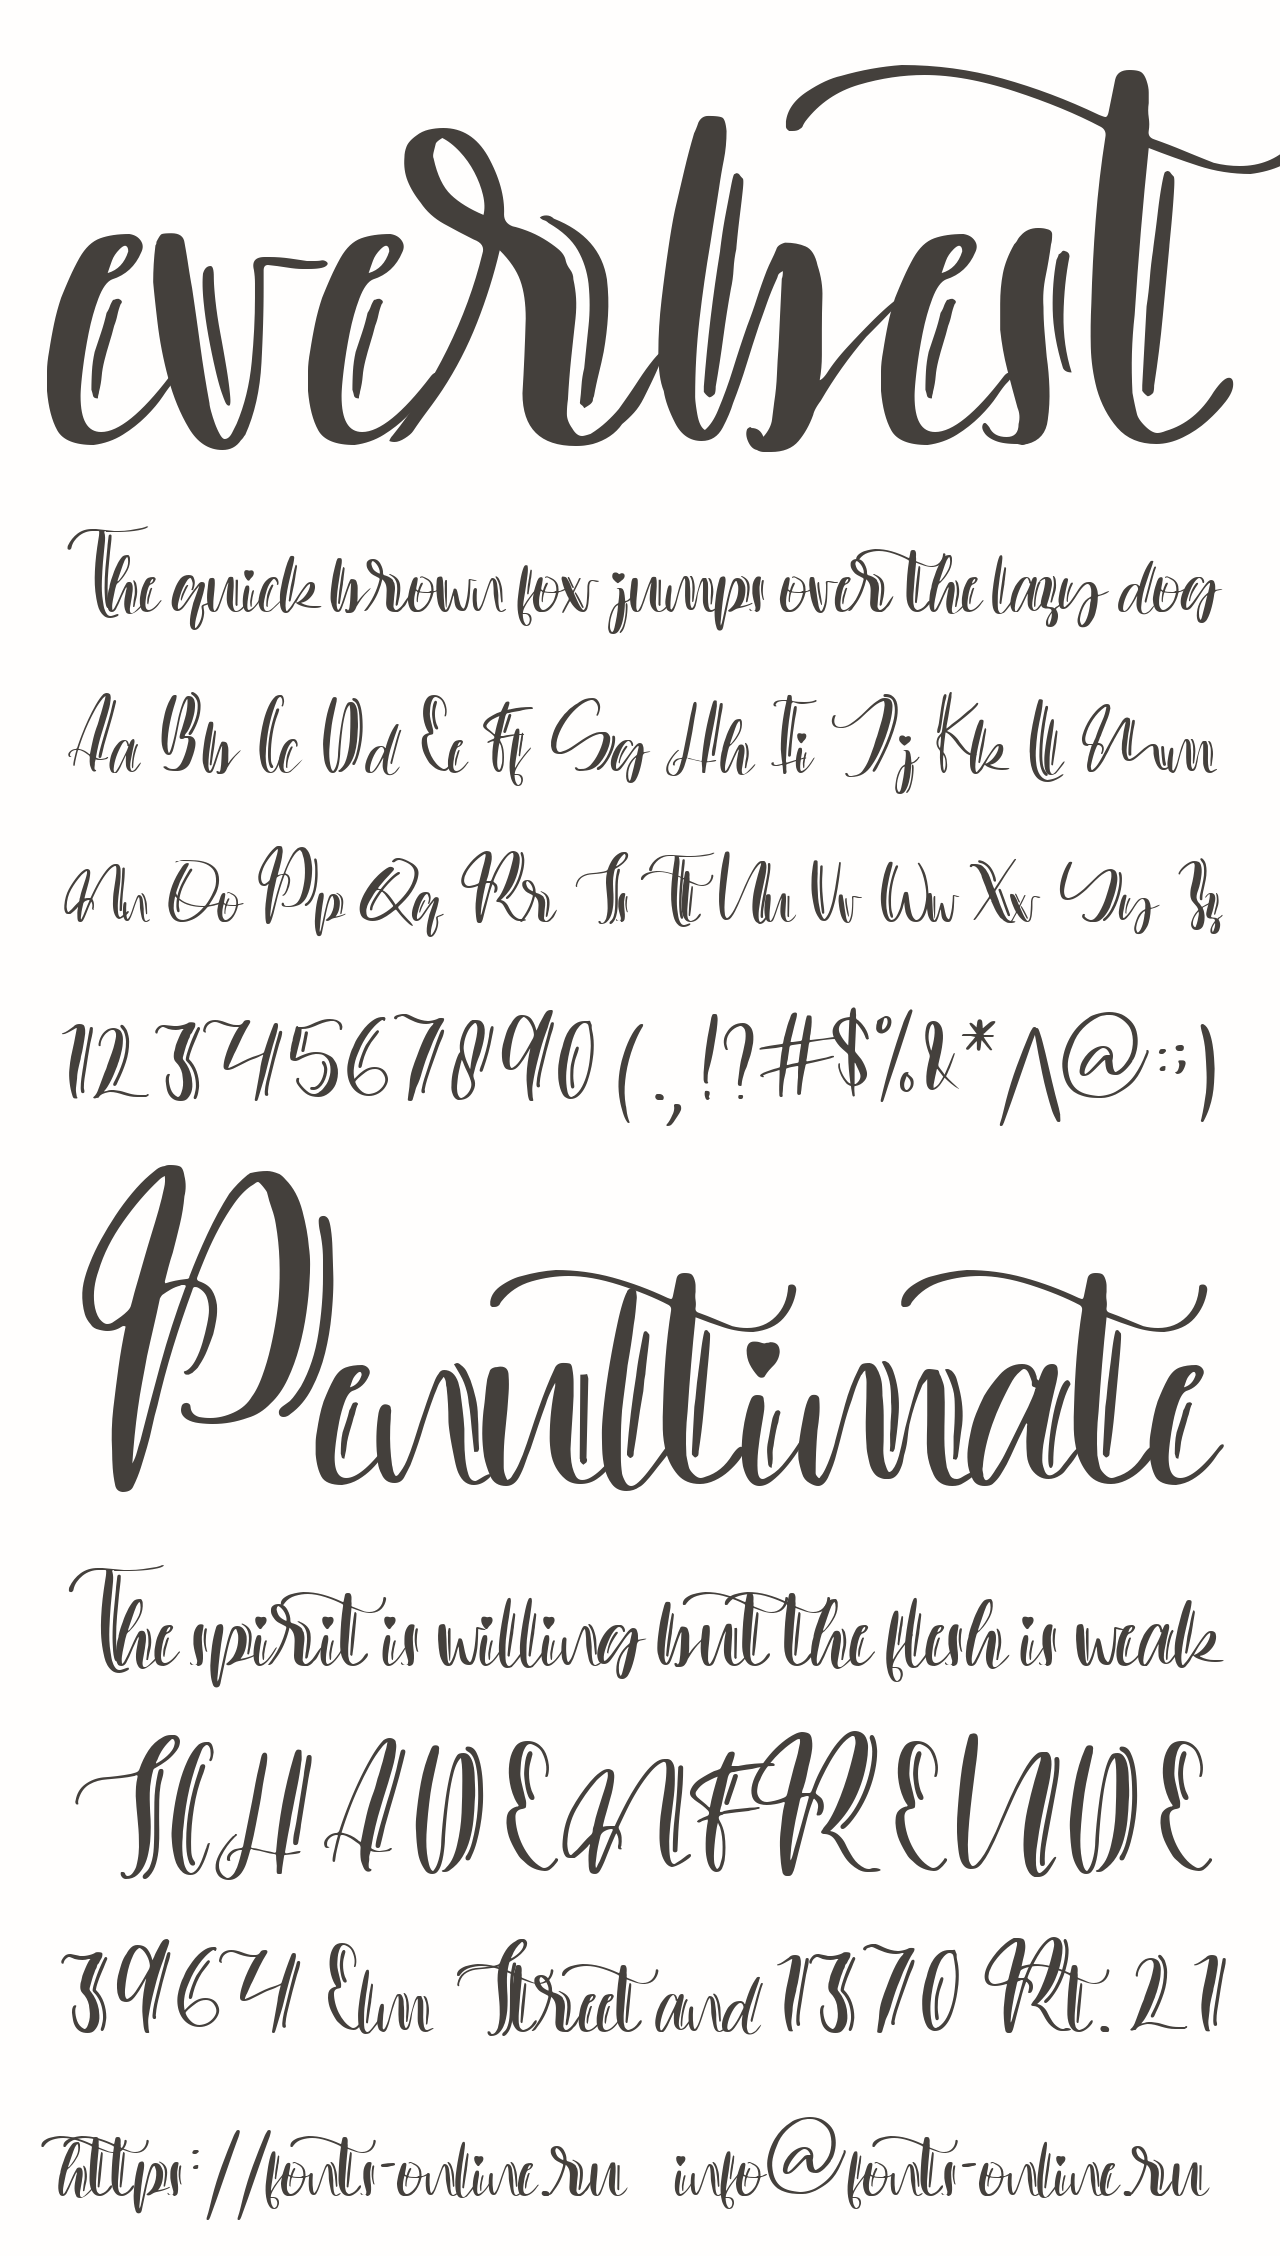 everbest
The quick brown fox jumps over the lazy dog
Aa Bb Cc Dd Ee Ff Gg Hh Ii Jj Kk Ll Mm
Nn Oo Pp Qq Rr Ss Tt Uu Vv Ww Xx Yy Zz
1234567890(.,!?#$%&*^@:;)
Penultimate
The spirit is willing but the flesh is weak
SCHADENFREUDE
3964 Elm Street and 1370 Rt. 21
https://fonts-online.ru info@fonts-online.ru